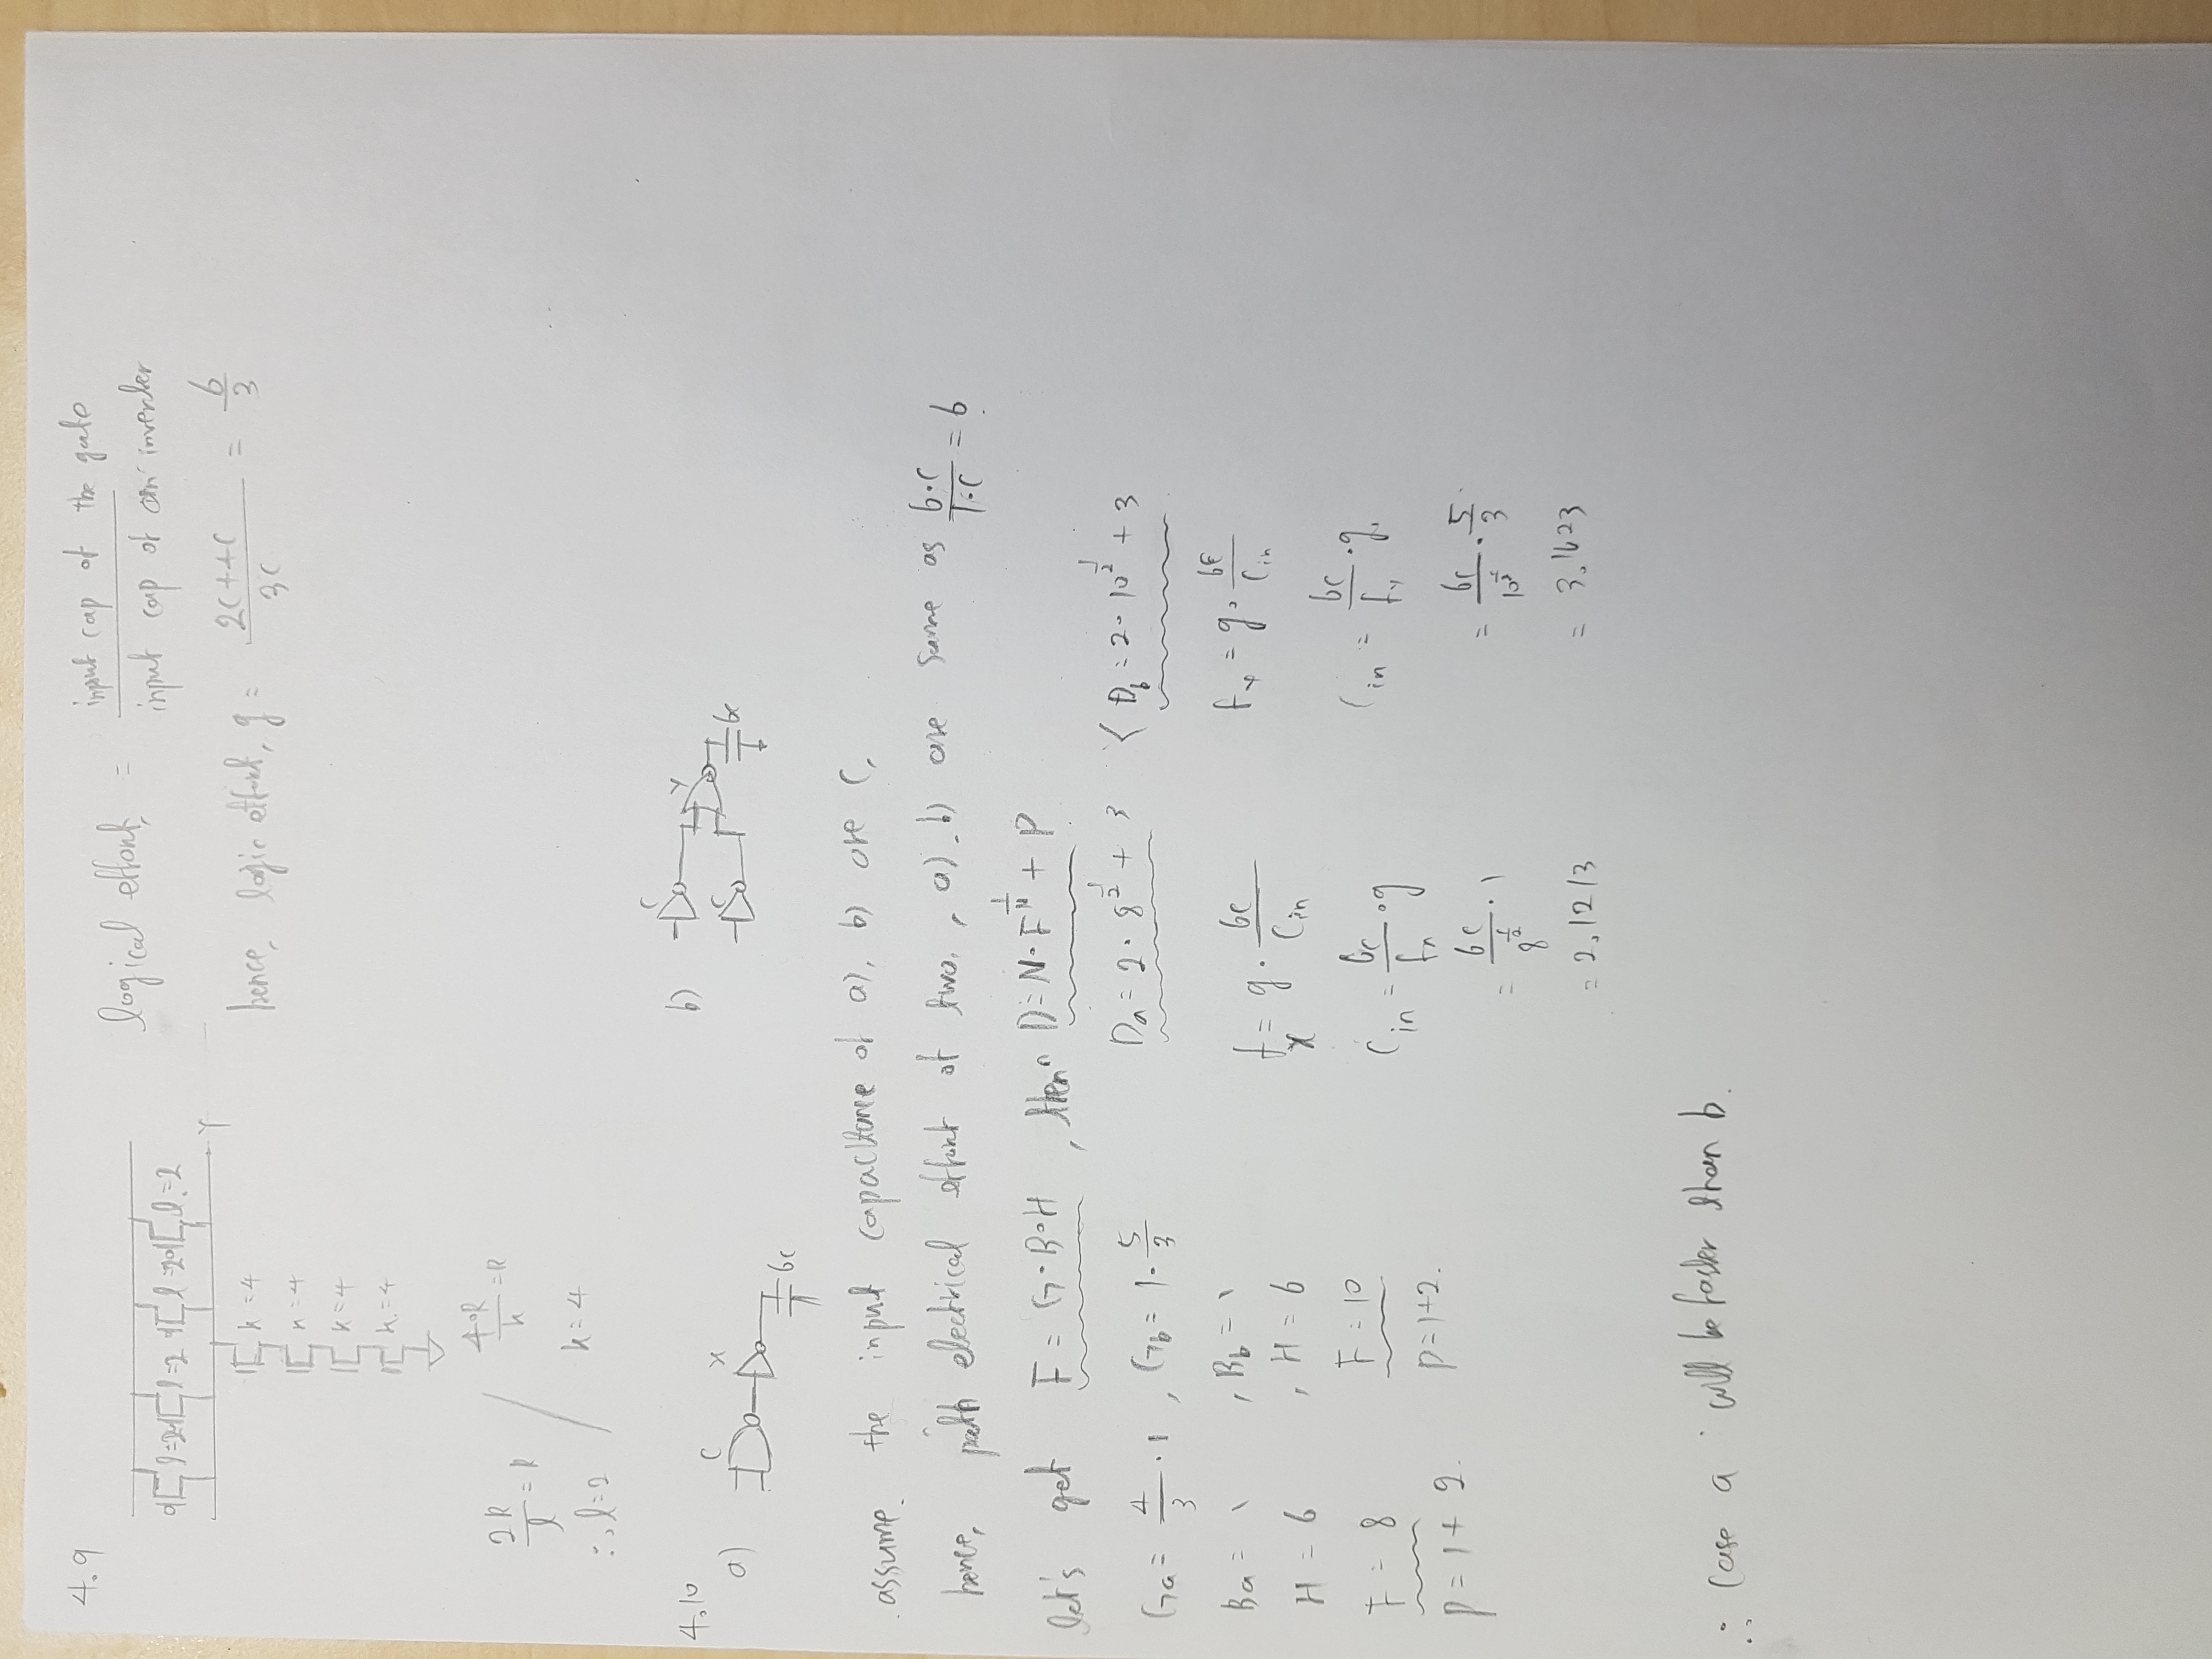 4.9
logical effort, = input cap of the gate / input cap of an inverter
l=2 l=2 l=2 l=2
Y
k=4
k=4
k=4
k=4
hence, logic effort, g = (2C+4C)/3C = 6/3
2R/l = R / 4·R/k = R
∴ l=2 k=4
4.10
a) C x 6C
b) C C Y 6C
assume the input capacitance of a), b) are C,
hence, path electrical effort of two, a), b) are same as 6·C/1·C = 6
let's get F = G·B·H, then D = N·F^(1/N) + P
Ga = 4/3 · 1, Gb = 1 · 5/3
Ba = 1, Bb = 1
H = 6, H = 6
F = 8 F = 10
p = 1+2. p = 1+2.
Da = 2·8^(1/2) + 3 < Db = 2·10^(1/2) + 3
fx = g · 6C/Cin
Cin = 6C/fx · g
= 6C/8^(1/2) · 1
= 2.1213
fy = g · 6C/Cin
Cin = 6C/fy · g
= 6C/10^(1/2) · 5/3
= 3.1623
∴ case a will be faster than b.